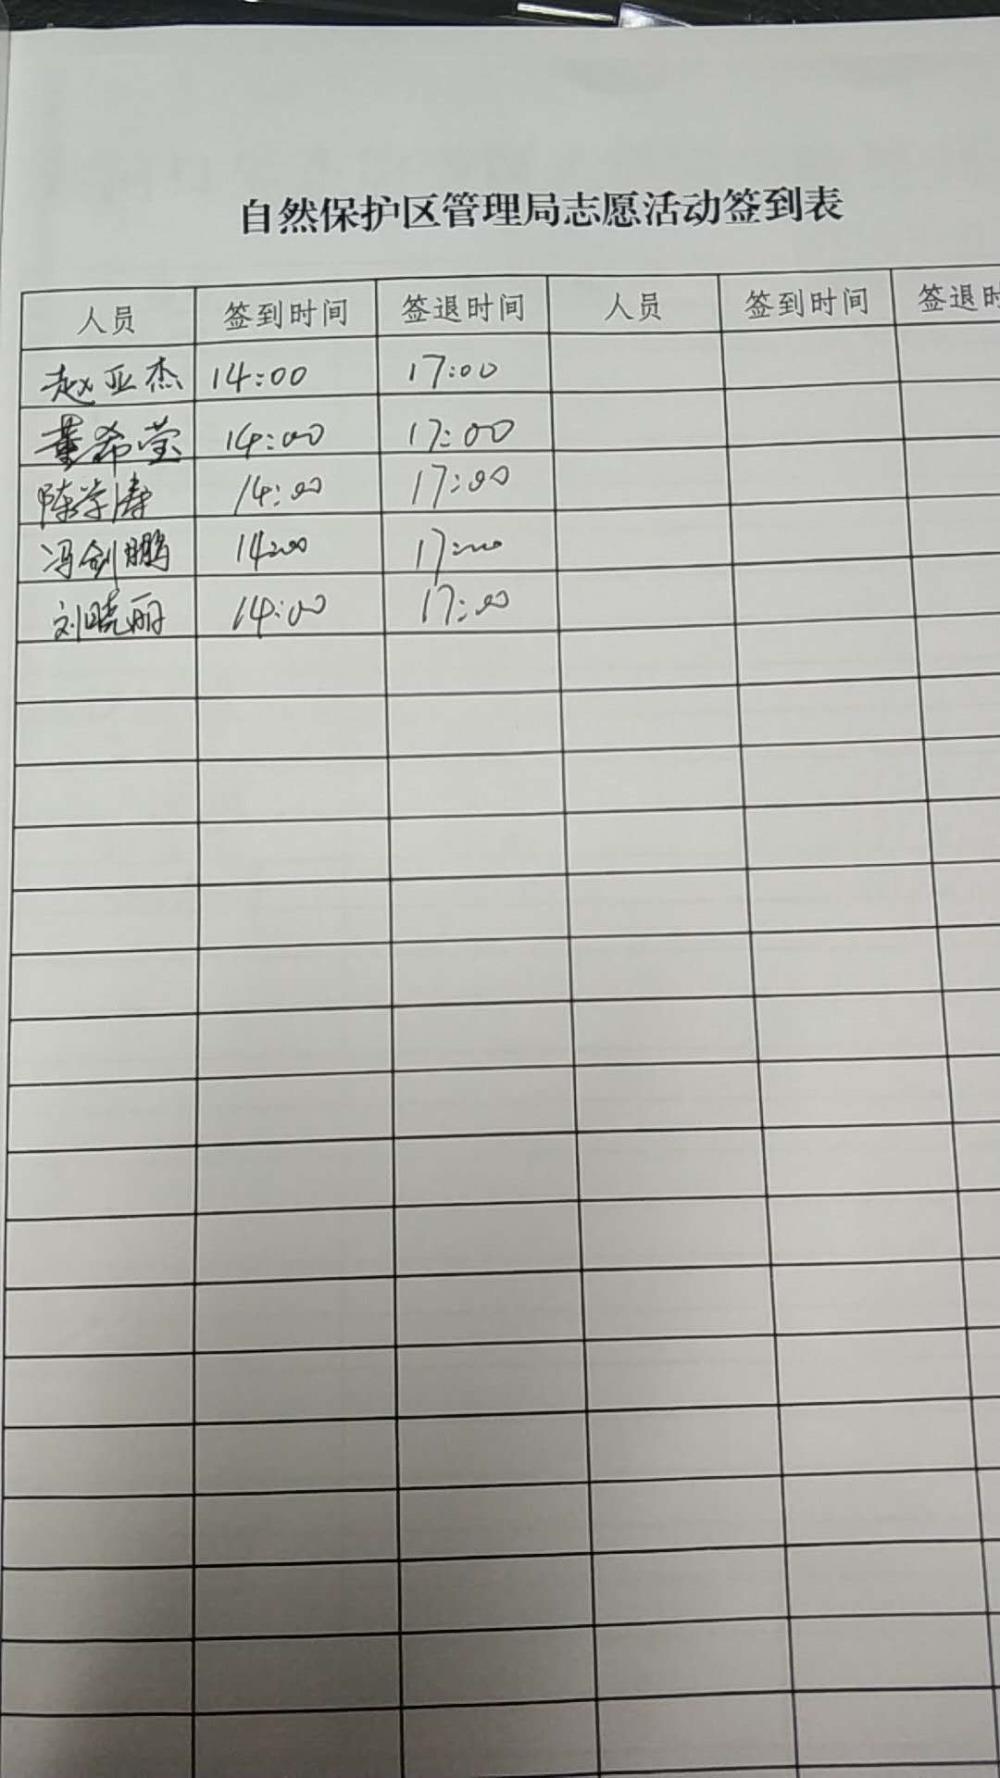 自然保护区管理局志愿活动签到表
人员 签到时间 签退时间 人员 签到时间 签退时
赵亚杰 14:00 17:00
董希莹 14:00 17:00
陈学涛 14:00 17:00
冯剑鹏 14:00 17:00
刘晓丽 14:00 17:00